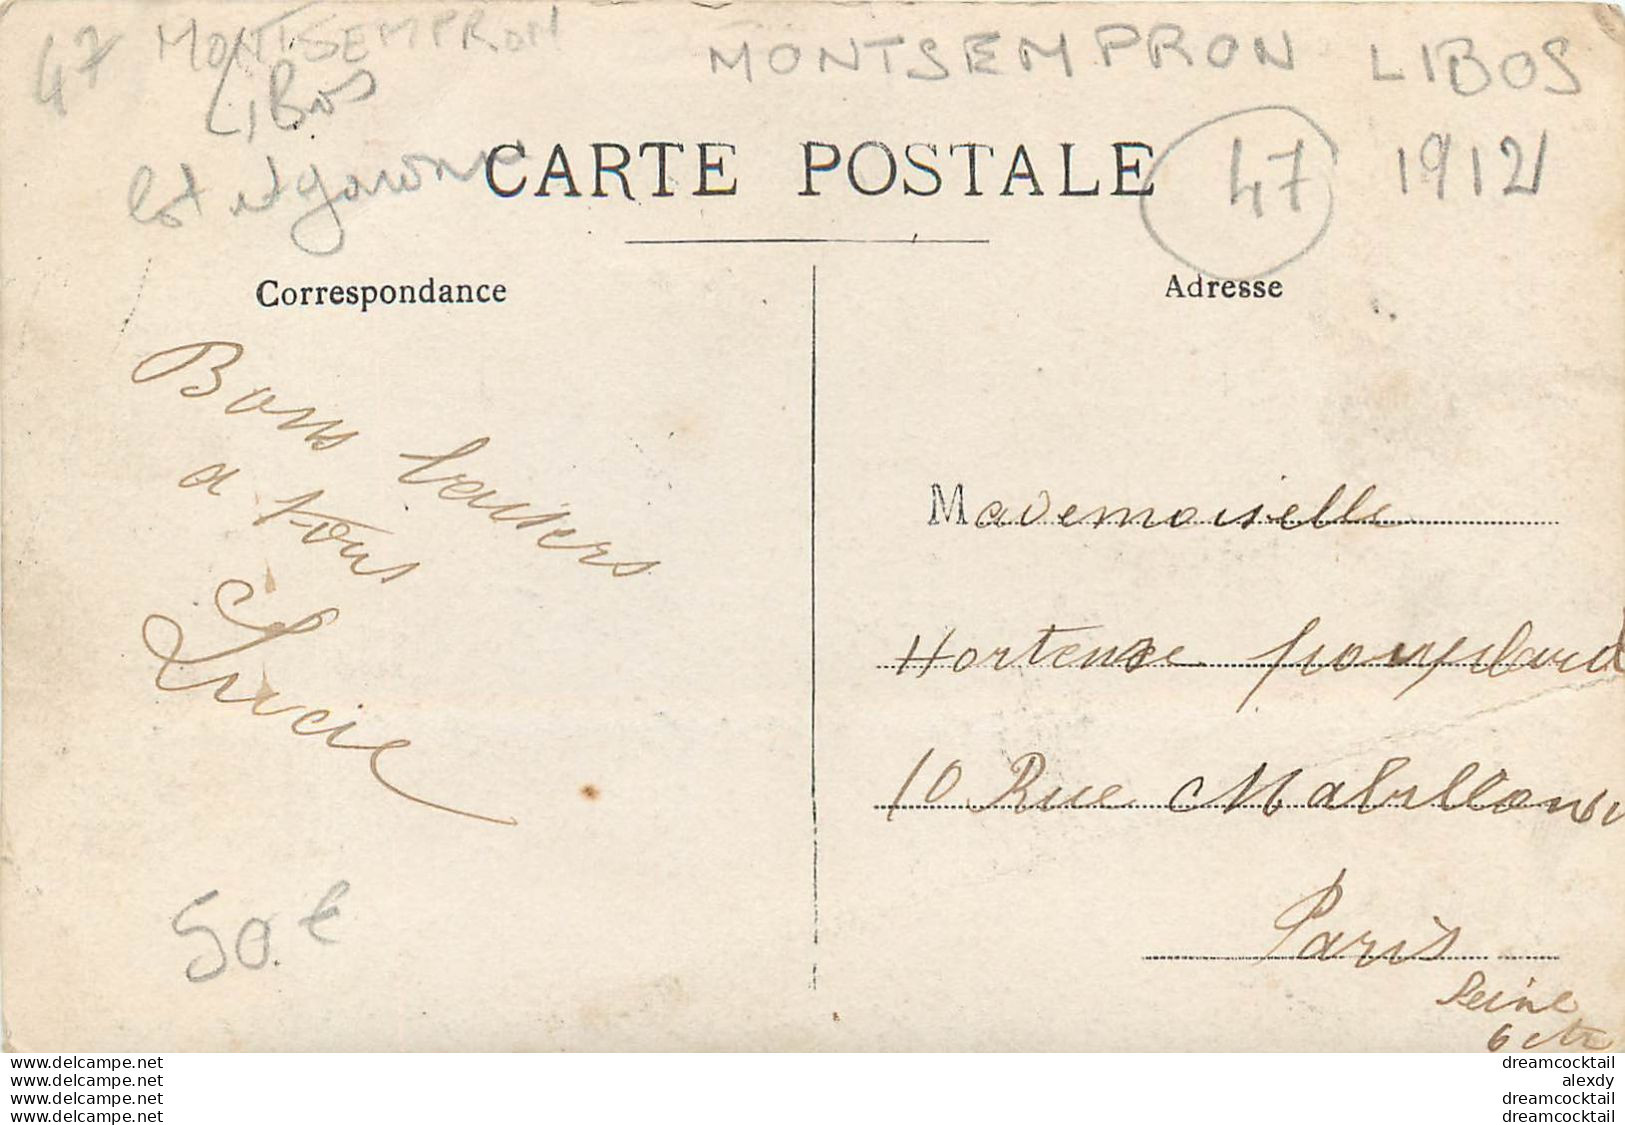 47 MONTSEMPRON
LIBOS
Lot et Garonne
MONTSEMPRON LIBOS
47 1912
CARTE POSTALE
Correspondance
Adresse
Bons baisers
a tous
Lucie
50 €
Mademoiselle
Hortense
10 Rue Mabillon
Paris
Seine
6
www.delcampe.net
www.delcampe.net
www.delcampe.net
www.delcampe.net
dreamcocktail
alexdy
dreamcocktail
dreamcocktail